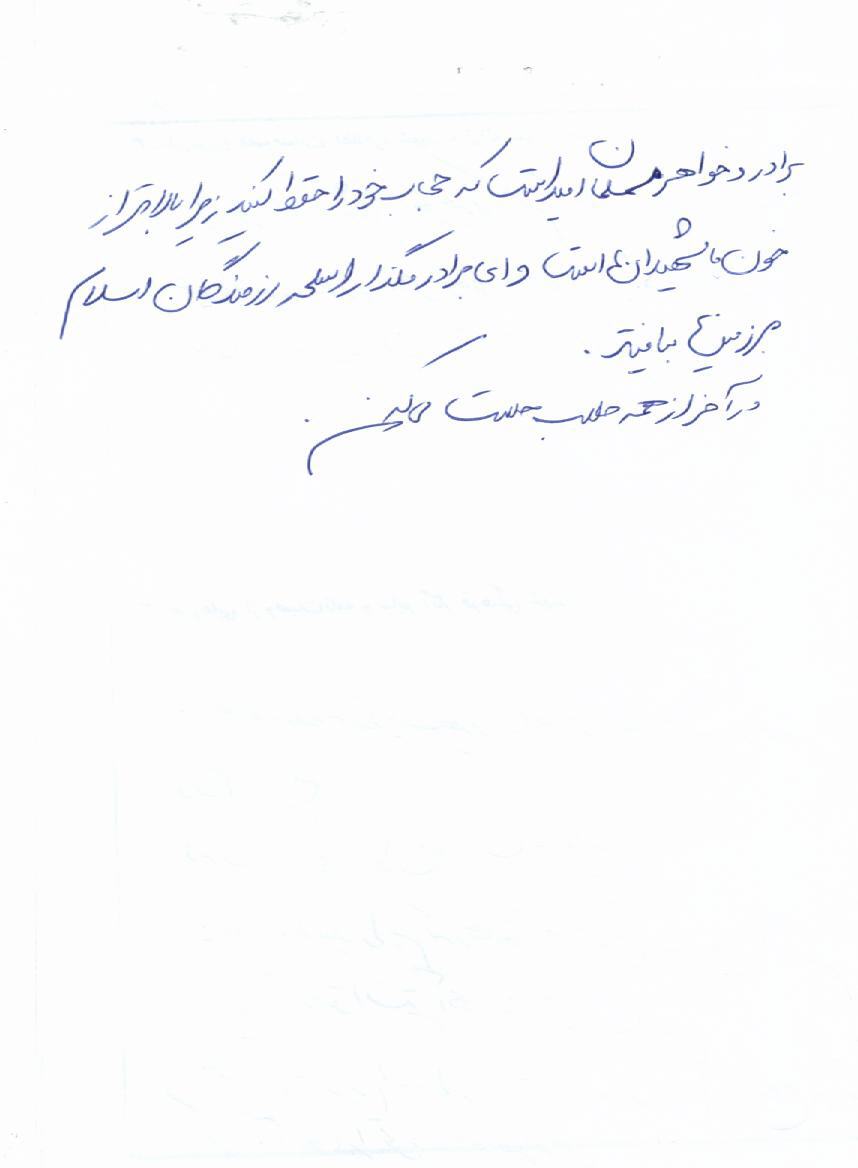 برادر و خواهر مسلمان امید است که حجاب خود را حفظ کنید زیرا بالاتر از
خون ما شهیدان است و ای برادر نگذار اسلحه رزمندگان اسلام
بر زمین بیافتد.
در آخر از همه طلب حلیت می‌کنم.